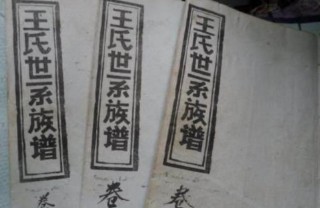 王氏世系族谱
卷
王氏世系族谱
卷
王氏世系族谱
卷